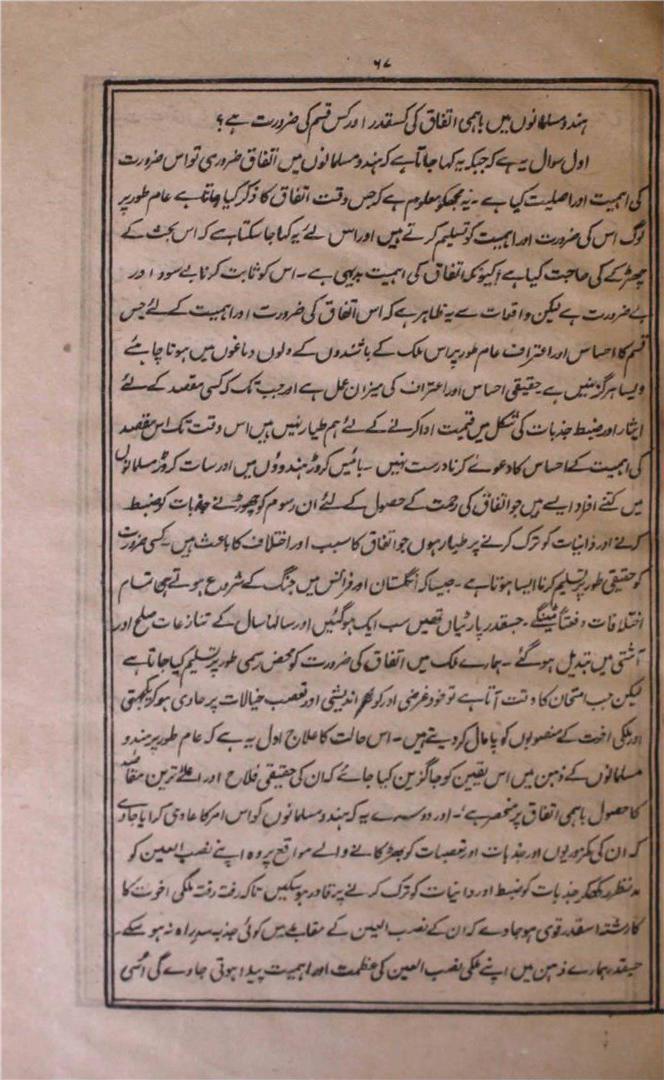 ۶۷
ہندو مسلمانوں میں باہمی اتفاق کی کسقدر اور کس قسم کی ضرورت ہے؟
اول سوال یہ ہے کہ جبکہ یہ کہا جاتا ہے کہ ہندو مسلمانوں میں اتفاق ضروری تو اس ضرورت
کی اہمیت اور اصلیت کیا ہے ۔ یہ مجھکو معلوم ہے کہ جس وقت اتفاق کا ذکر کیا جاتا ہے عام طور پر
لوگ اس کی ضرورت اور اہمیت کو تسلیم کرتے ہیں اور اس لئے یہ کہا جا سکتا ہے کہ اس بحث کے
چھڑنے کی حاجت کیا ہے کیونکہ اتفاق کی اہمیت بدیہی ہے ۔ اس کو ثابت کرنا بے سود اور
بے ضرورت ہے لیکن واقعات سے یہ ظاہر ہے کہ اس اتفاق کی ضرورت اور اہمیت کے لئے جس
قسم کا احساس اور اعتراف عام طور پر اس ملک کے باشندوں کے دلوں دماغوں میں ہونا چاہئے
ویسا ہرگز نہیں ہے حقیقی احساس اور اعتراف کی میزان عمل ہے اور جب تک کہ کسی مقصد کے لئے
ایثار اور ضبط جذبات کی شکل میں قیمت ادا کرنے کے لئے ہم طیار نہیں ہیں اس وقت تک اس مقصد
کی اہمیت کے احساس کا دعوےٰ کرنا درست نہیں ۔ بائیس کروڑ ہندوؤں میں اور سات کروڑ مسلمانوں
میں کتنے افراد ایسے ہیں جو اتفاق کی رحمت کے حصول کے لئے ان رسوم کو چھوڑنے جذبات کو ضبط
کرنے اور ذاتیات کو ترک کرنے پر طیار ہوں جو اتفاق کا سبب اور اختلاف کا باعث ہیں ۔ کسی ضرورت
کو حقیقی طور پر تسلیم کرنا ایسا ہوتا ہے ۔ جیسا کہ انگلستان اور فرانس میں جنگ کے شروع ہوتے ہی تمام
اختلافات دفعتاً مٹ گئے ۔ جسقدر پارٹیاں تھیں سب ایک ہو گئیں اور سالہا سال کے تنازعات صلح اور
آشتی میں تبدیل ہو گئے ۔ ہمارے ملک میں اتفاق کی ضرورت کو محض رسمی طور پر تسلیم کیا جاتا ہے
لیکن جب امتحان کا وقت آتا ہے تو خود غرضی اور کوتہ اندیشی اور تعصب خیالات پر حاوی ہو کر یکجہتی
اور ملکی اخوت کے منصوبوں کو پامال کر دیتے ہیں ۔ اس حالت کا علاج اول یہ ہے کہ عام طور پر ہندو
مسلمانوں کے ذہن میں اس یقین کو جاگزین کیا جائے کہ ان کی حقیقی فلاح اور اعلےٰ ترین مقاصد
کا حصول باہمی اتفاق پر منحصر ہے ۔ اور دوسرے یہ کہ ہندو مسلمانوں کو اس امر کا عادی کرایا جاوے
کہ ان کی کمزوریوں اور جذبات اور تعصبات کو بھڑکانے والے مواقع پر وہ اپنے نصب العین کو
مد نظر رکھکر جذبات کو ضبط اور ذاتیات کو ترک کرنے پر قادر ہو سکیں تاکہ رفتہ رفتہ ملکی اخوت کا
کا رشتہ اسقدر قوی ہو جاوے کہ ان کے نصب العین کے مقابلے میں کوئی جذبہ سد راہ نہ ہو سکے ۔
جسقدر ہمارے ذہن میں اپنے ملکی نصب العین کی عظمت اور اہمیت پیدا ہوتی جاوے گی اُسی